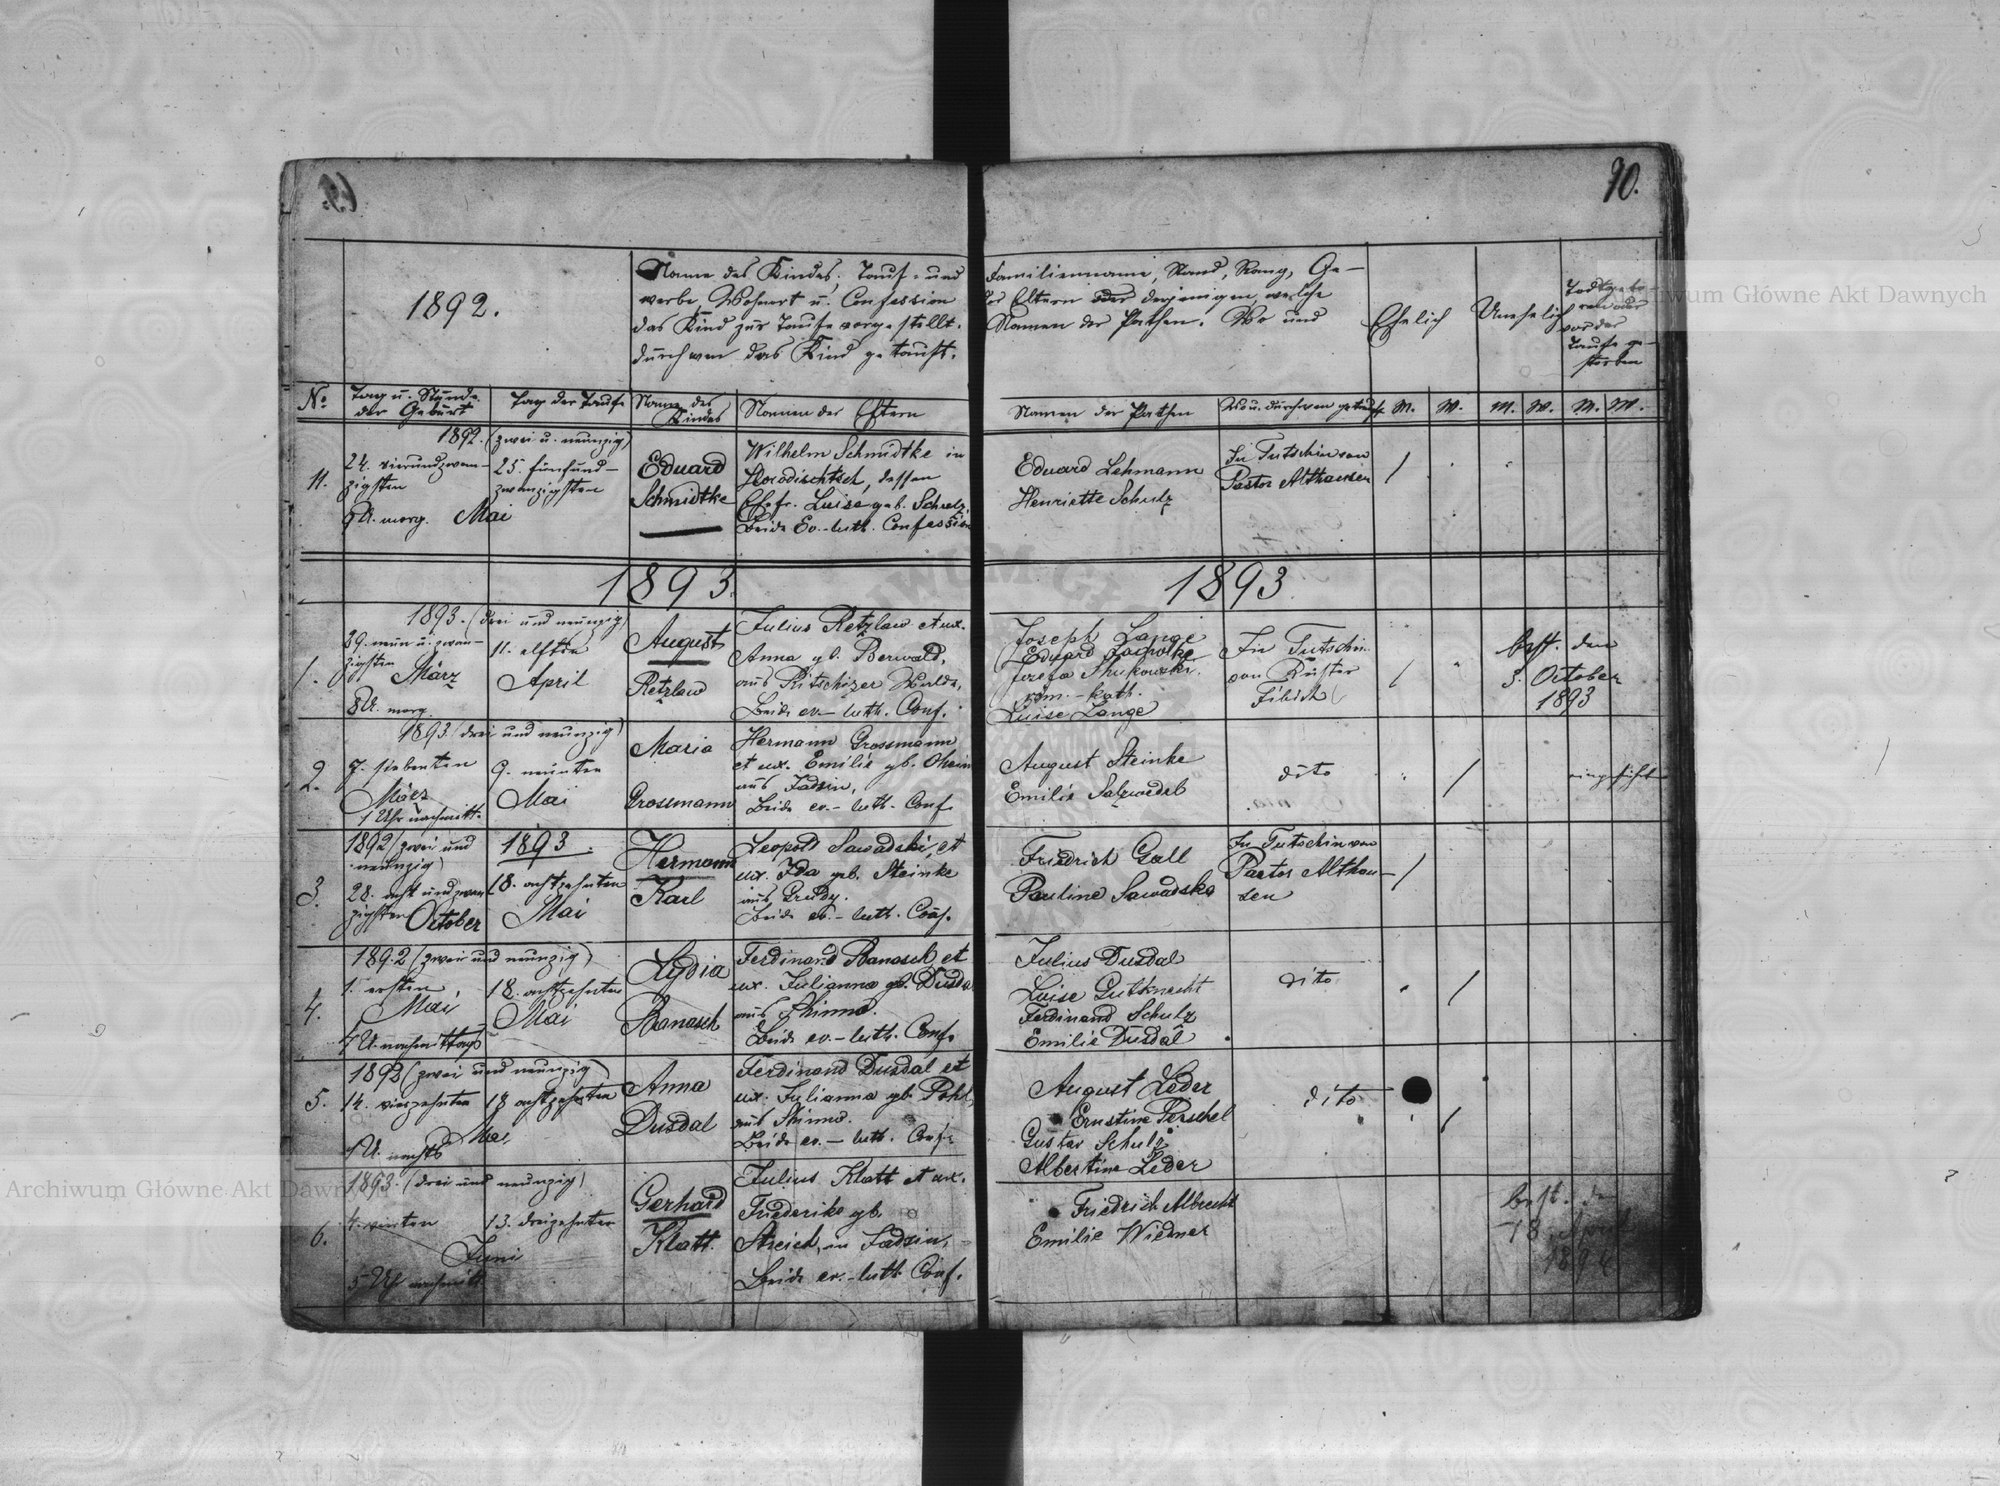 69.
1892.
Name des Kindes, Tauf- und
werbe, Wohnort u. Confession
das Kind zur Taufe vorgestellt.
durch wen das Kind getauft.
No.
Tag u. Stunde
der Geburt
Tag der Taufe
Name des
Kindes
Namen der Eltern
11.
1892. (zwei u. neunzig)
24. vierundzwan-
zigsten
9 U. morg. Mai
25. fünfund-
zwanzigsten
Eduard
Schmidtke
Wilhelm Schmidtke in
Horodischtsch, dessen
Ehefr. Luise geb. Schulz,
Beide Ev-luth. Confession
1893.
1.
1893. (drei und neunzig)
29. neun u. zwan-
zigsten
März
8 U. morg.
11. elften
April
August
Retzlaw
Julius Retzlaw et ux.
Anna gb. Berwald,
aus Walde,
Beide ev.- luth. Conf.
2.
1893 (drei und neunzig)
7. siebenten
März
1 Uhr nachmitt.
9. neunten
Mai
Maria
Grossmann
Hermann Grossmann
et ux. Emilie gb.
aus Jadzin,
Beide ev.- luth. Conf.
3.
1892 (zwei und
neunzig)
28. acht und zwan
zigsten October
1893.
18. achtzehnten
Mai
Hermann
Karl
Leopold Sawadski, et
ux. Ida geb. Steinke
aus
Beide ev.- luth. Conf.
4.
1892 (zwei und neunzig)
1. ersten
Mai
U. nachmittags
18. achtzehnten
Mai
Lydia
Banasch
Ferdinand Banasch et
ux. Julianna gb. Dusdal
aus
Beide ev.- luth. Conf.
5.
1892 (zwei und neunzig)
14. vierzehnten
Mai
1 U. nachts
18 achtzehnten
Anna
Dusdal
Ferdinand Dusdal et
ux. Julianna gb. Pohl,
aus
Beide ev.- luth. Conf.
6.
1893. (drei und neunzig)
4. vierten
Juni
5 Uhr nachmitt.
13. dreizehnten
Gerhard
Klatt.
Julius Klatt et ux.
Friederike gb.
Streich, in Jadzin,
Beide ev.- luth. Conf.
70.
Familienname, Stand, Rang, Ge-
der Eltern oder derjenigen, welche
Namen der Pathen. Wo und
Ehelich
Unehelich
Todtgebo-
ren oder
vor der
Taufe ge-
storben
Namen der Pathen
Wo u. durch wen getauft
M.
W.
M.
W.
M.
W.
Eduard Lehmann
Henriette Schulz
In Tutschin von
Pastor Althausen
1893.
Joseph Lange
Eduard
Josefa Shukowski
röm.- kath.
Luise Lange
In Tutschin
von Küster
best. den
3. October
1893
August Steinke
Emilie Salzwedel
dito
Friedrich Gall
Pauline Sawadska
In Tutschin von
Pastor Althau-
sen
Julius Dusdal
Luise Gutknecht
Ferdinand Schulz
Emilie Dusdal
dito
August Leder
Ernstine Perschel
Gustav Schulz
Albertine Leder
dito
Friedrich Albrecht
Emilie Widner
best. den
18. April
189
Archiwum Główne Akt Dawnych
Archiwum Główne Akt Dawnych